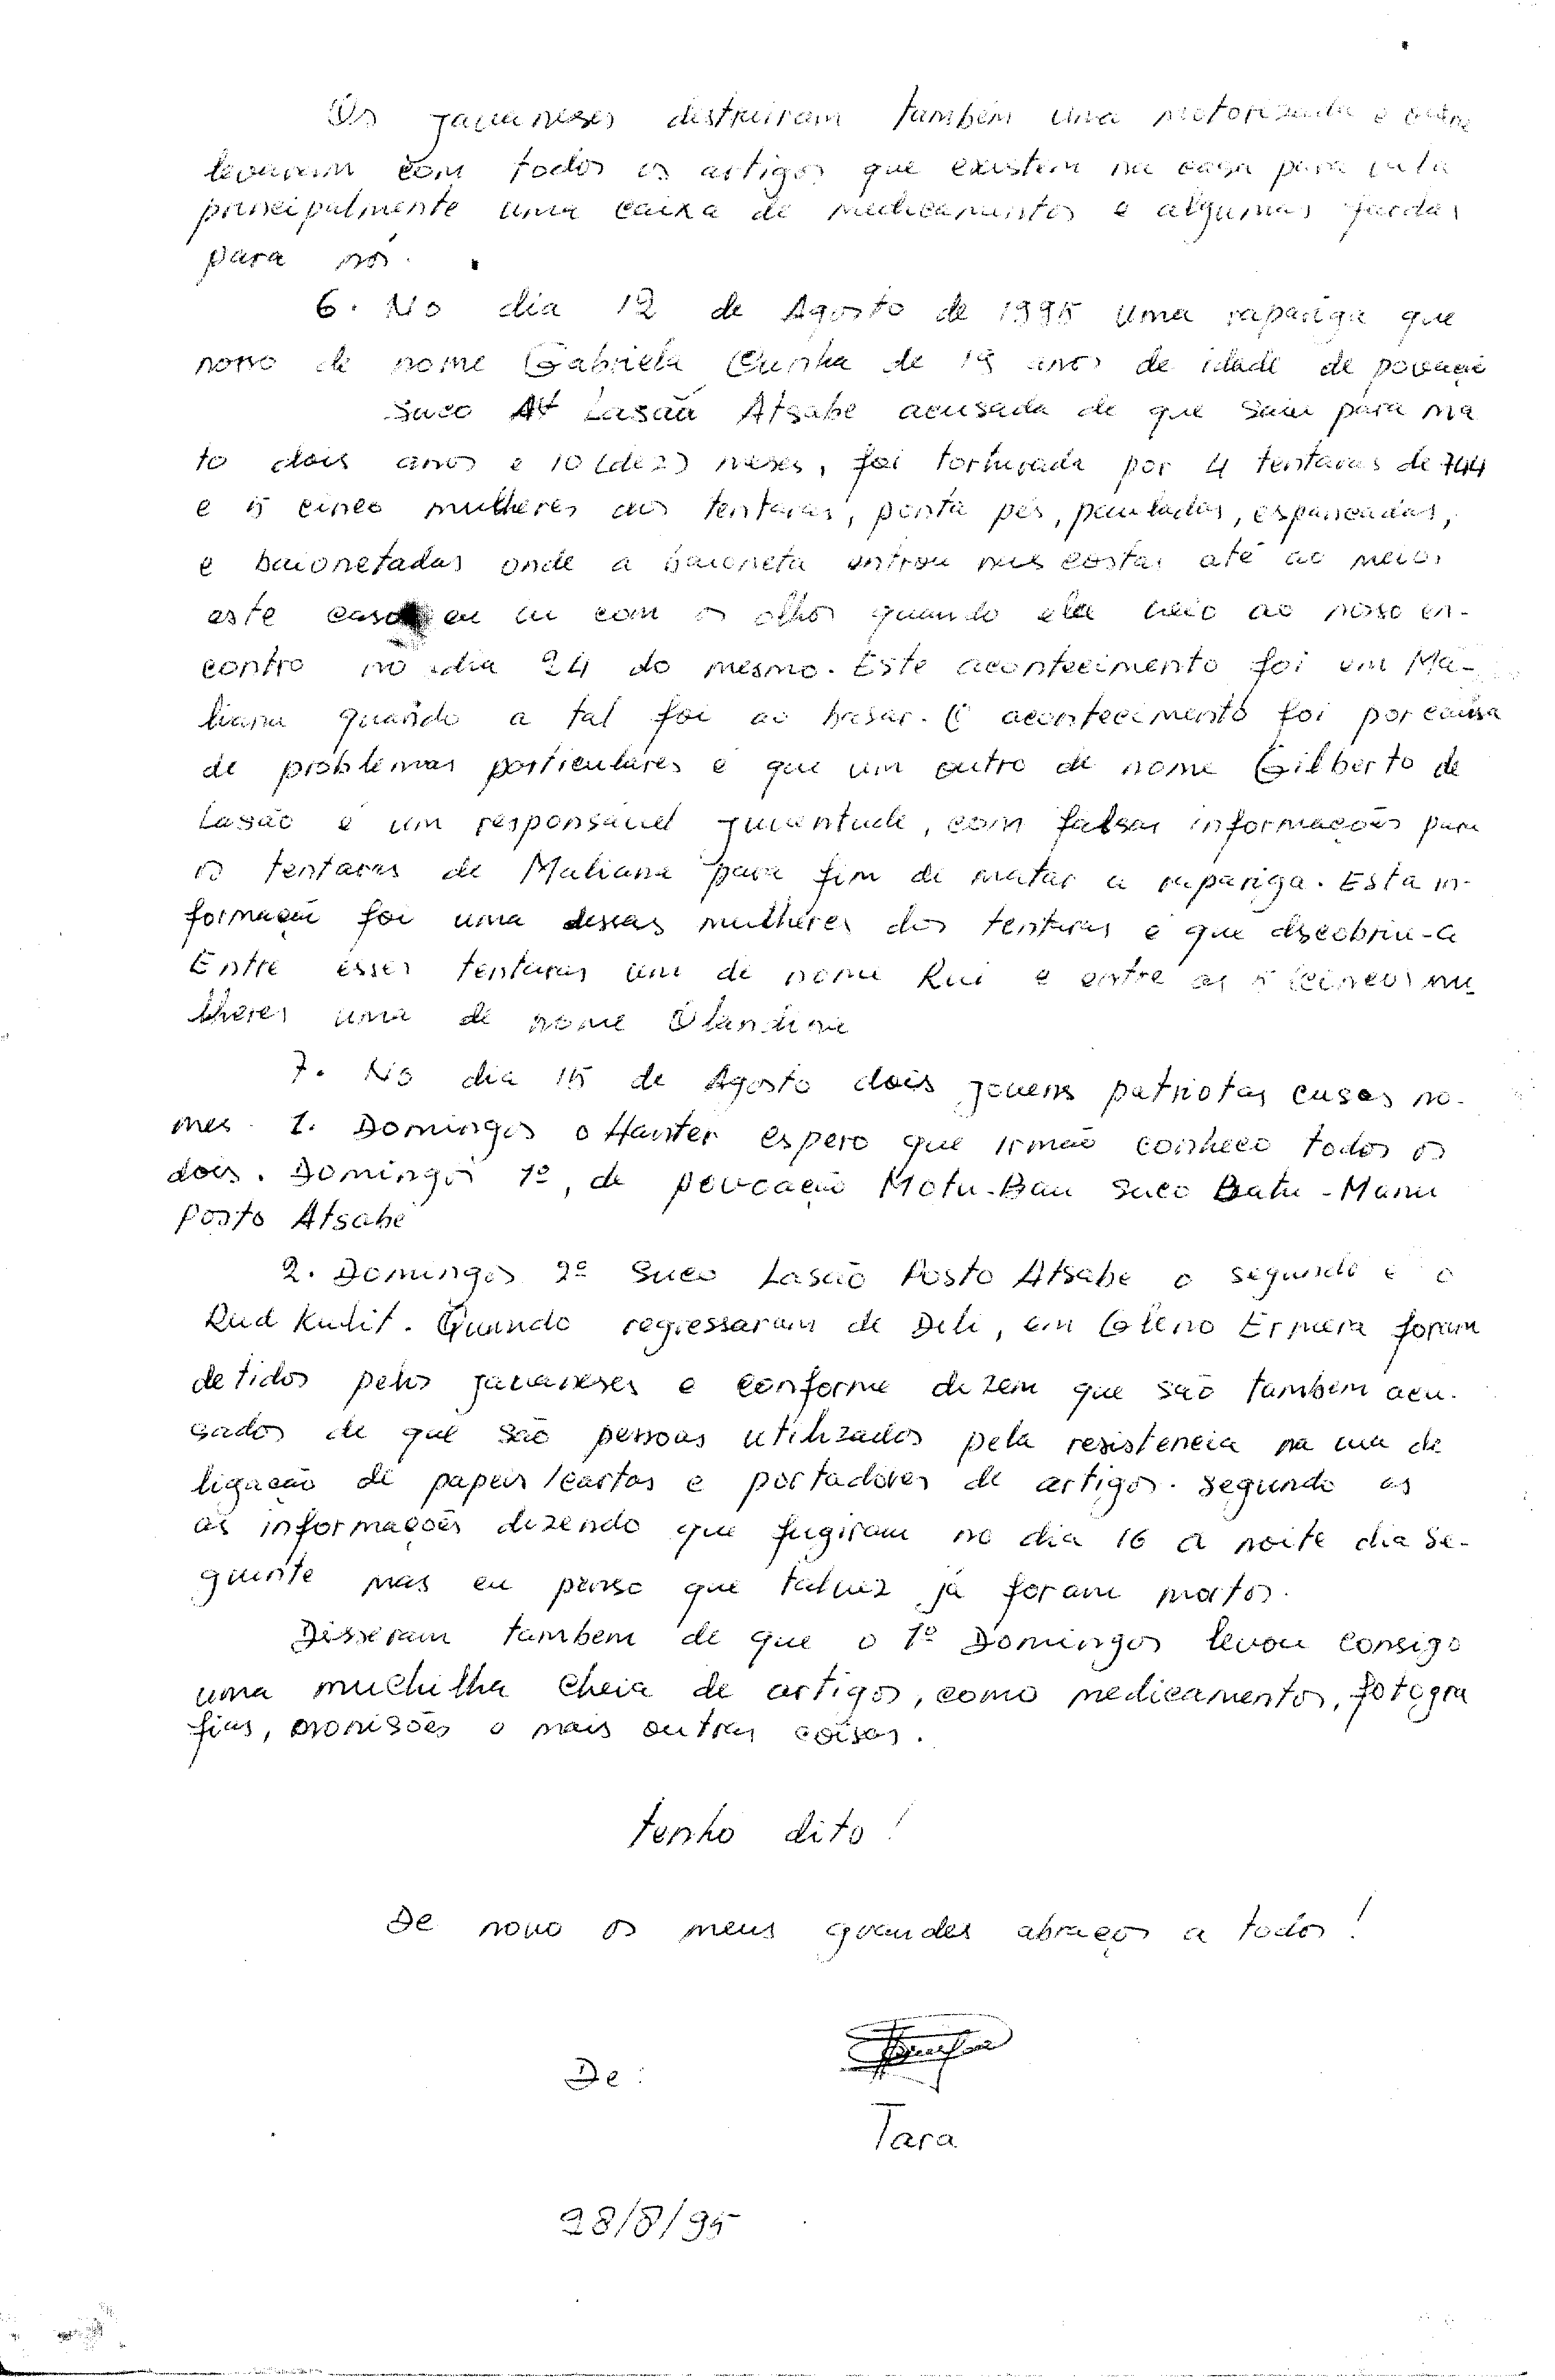 Os javaneses distruiram também uma motorizada e
levaram com todos os artigos que existem na casa para luta
principalmente uma caixa de medicamentos e algumas fardas
para nós.
6. No dia 12 de Agosto de 1995 uma rapariga que
nosso de nome Gabriela Cunha de 19 anos de idade de povoação
Suco Lasaũ Atsabe acusada de que saiu para ma
to dois anos e 10 (dez) meses, foi torturada por 4 tentaras de 744
e 5 cinco mulheres dos tentaras, ponta pés, pauladas, espancadas,
e baionetadas onde a baioneta entrou nas costas até ao meio.
este caso eu vi com os olhos quando ela veio ao nosso en-
contro no dia 24 do mesmo. Este acontecimento foi em Ma-
liana quando a tal foi ao basar. O acontecimento foi por causa
de problemas particulares e que um outro de nome Gilberto de
Lasão é um responsável juventude, com falsas informações para
os tentaras de Maliana para fim de matar a rapariga. Esta in-
formação foi uma dessas mulheres dos tentaras é que descobriu-a
Entre esses tentaras um de nome Rui e entre as 5 (cinco) mu
lheres uma de nome Olandina
7. No dia 15 de Agosto dois jovens patriotas cusos no-
mes. 1. Domingos o Hanter espero que irmão conhece todos os
dois. Domingos 1º, de povoação Motu-Bau Suco Batu-Manu
Posto Atsabe
2. Domingos 2º Suco Lasaõ Posto Atsabe o segundo é o
Rud Kulit. Quando regressaram de Deli, em Gleno Ermera foram
detidos pelos javaneses e conforme dizem que são tambem acu-
sados de que são pessoas utilizados pela resistencia na via de
ligação de papeis/cartas e portadores de artigos. Segundo as
as informações dizendo que fugiram no dia 16 a noite dia se-
guinte mas eu penso que talvez já foram mortos.
Disseram tambem de que o 1º Domingos levou consigo
uma muchilha cheia de artigos, como medicamentos, fotogra
fias, monisões e mais outras coisas.
tenho dito!
De novo os meus grandes abraços a todos!
De:
Tara
28/8/95